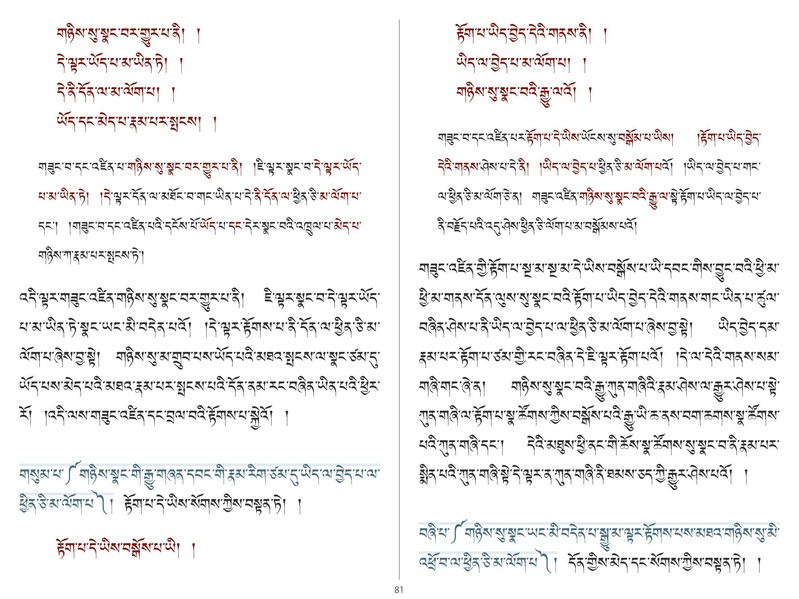 གཉིས་སུ་སྣང་བར་གྱུར་པ་ནི། །
དེ་ལྟར་ཡོད་པ་མ་ཡིན་ཏེ། །
དེ་ནི་དོན་ལ་མ་ལོག་པ། །
ཡོད་དང་མེད་པ་རྣམ་པར་སྤངས། །
གཟུང་བ་དང་འཛིན་པ་གཉིས་སུ་སྣང་བར་གྱུར་པ་ནི། །ཇི་ལྟར་སྣང་བ་དེ་ལྟར་ཡོད་
པ་མ་ཡིན་ཏེ། །དེ་ལྟར་དོན་ལ་མཐོང་བ་གང་ཡིན་པ་དེ་ནི་དོན་ལ་ཕྱིན་ཅི་མ་ལོག་པ་
དང་། །གཟུང་བ་དང་འཛིན་པའི་དངོས་པོ་ཡོད་པ་དང་དེར་སྣང་བའི་འཁྲུལ་པ་མེད་པ་
གཉིས་ཀ་རྣམ་པར་སྤངས་ཏེ།
འདི་ལྟར་གཟུང་འཛིན་གཉིས་སུ་སྣང་བར་གྱུར་པ་ནི། ཇི་ལྟར་སྣང་བ་དེ་ལྟར་ཡོད་
པ་མ་ཡིན་ཏེ་སྣང་ཡང་མི་བདེན་པའོ། །དེ་ལྟར་རྟོགས་པ་ནི་དོན་ལ་ཕྱིན་ཅི་མ་
ལོག་པ་ཞེས་བྱ་སྟེ། གཉིས་སུ་མ་གྲུབ་པས་ཡོད་པའི་མཐའ་སྤངས་ལ་སྣང་ཙམ་དུ་
ཡོད་པས་མེད་པའི་མཐའ་རྣམ་པར་སྤངས་པའི་དོན་ནམ་རང་བཞིན་ཡིན་པའི་ཕྱིར་
རོ། །འདི་ལས་གཟུང་འཛིན་དང་བྲལ་བའི་རྟོགས་པ་སྐྱེའོ། །
གསུམ་པ་༼གཉིས་སྣང་གི་རྒྱུ་གཞན་དབང་གི་རྣམ་རིག་ཙམ་དུ་ཡིད་ལ་བྱེད་པ་ལ་
ཕྱིན་ཅི་མ་ལོག་པ་༽། རྟོག་པ་དེ་ཡིས་སོགས་ཀྱིས་བསྟན་ཏེ། །
རྟོག་པ་དེ་ཡིས་བསྒོས་པ་ཡི། །
རྟོག་པ་ཡིད་བྱེད་དེའི་གནས་ནི། །
ཡིད་ལ་བྱེད་པ་མ་ལོག་པ། །
གཉིས་སུ་སྣང་བའི་རྒྱུ་ལའོ། །
གཟུང་བ་དང་འཛིན་པར་རྟོག་པ་དེ་ཡིས་ཡོངས་སུ་བསྒོམ་པ་ཡིས། །རྟོག་པ་ཡིད་བྱེད་
དེའི་གནས་ཤེས་པ་དེ་ནི། །ཡིད་ལ་བྱེད་པ་ཕྱིན་ཅི་མ་ལོག་པའོ། །ཡིད་ལ་བྱེད་པ་གང་
ལ་ཕྱིན་ཅི་མ་ལོག་ཅེ་ན། གཟུང་འཛིན་གཉིས་སུ་སྣང་བའི་རྒྱུ་ལ་སྟེ་རྟོག་པ་ཡིད་ལ་བྱེད་པ་
ནི་བརྗོད་པའི་འདུ་ཤེས་ཕྱིན་ཅི་ལོག་པ་མ་བསྒོམས་པའོ།
གཟུང་འཛིན་གྱི་རྟོག་པ་སྔ་མ་སྔ་མ་དེ་ཡིས་བསྒོས་པ་ཡི་དབང་གིས་བྱུང་བའི་ཕྱི་མ་
ཕྱི་མ་གནས་དོན་ལུས་སུ་སྣང་བའི་རྟོག་པ་ཡིད་བྱེད་དེའི་གནས་གང་ཡིན་པ་ཚུལ་
བཞིན་ཤེས་པ་ནི་ཡིད་ལ་བྱེད་པ་ལ་ཕྱིན་ཅི་མ་ལོག་པ་ཞེས་བྱ་སྟེ། ཡིད་བྱེད་དམ་
རྣམ་པར་རྟོག་པ་ཙམ་གྱི་རང་བཞིན་དེ་ཇི་ལྟར་རྟོག་པའོ། །དེ་ལ་དེའི་གནས་སམ་
གཞི་གང་ཞེ་ན། གཉིས་སུ་སྣང་བའི་རྒྱུ་ཀུན་གཞིའི་རྣམ་ཤེས་ལ་རྒྱུར་ཤེས་པ་སྟེ་
ཀུན་གཞི་ལ་རྟོག་པ་སྣ་ཚོགས་ཀྱིས་བསྒོས་པའི་རྒྱུ་ཡི་ཆ་ནས་བག་ཆགས་སྣ་ཚོགས་
པའི་ཀུན་གཞི་དང་། དེའི་མཐུས་ཕྱི་ནང་གི་ཆོས་སྣ་ཚོགས་སུ་སྣང་བ་ནི་རྣམ་པར་
སྨིན་པའི་ཀུན་གཞི་སྟེ་དེ་ལྟར་ན་ཀུན་གཞི་ནི་ཐམས་ཅད་ཀྱི་རྒྱུར་ཤེས་པའོ། །
བཞི་པ་༼གཉིས་སུ་སྣང་ཡང་མི་བདེན་པ་སྒྱུ་མ་ལྟར་རྟོགས་པས་མཐའ་གཉིས་སུ་མི་
འཕྲོ་བ་ལ་ཕྱིན་ཅི་མ་ལོག་པ་༽། དོན་གྱིས་མེད་དང་སོགས་ཀྱིས་བསྟན་ཏེ། །
81